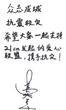 众志成城
抗震救灾
希望大家一起支持
21cn发起的爱心
联盟，携手抗灾！